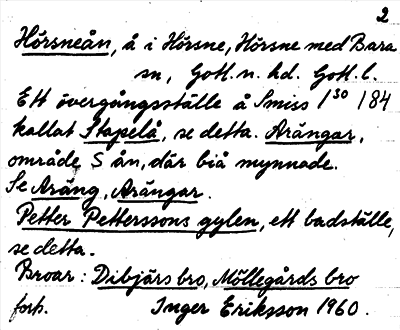 2
Hörsneån, å i Hörsne, Hörsne med Bara
sn, Gotl. n. hd. Gotl. l.
Ett övergångsställe å Smiss 1³⁰ 184
kallat Stapelå, se detta. Arängar,
område S ån, där biå mynnade.
Se Aräng, Arängar.
Petter Petterssons gylen, ett badställe,
se detta.
Broar: Dibjärs bro, Möllegårds bro
forts. Inger Eriksson 1960.